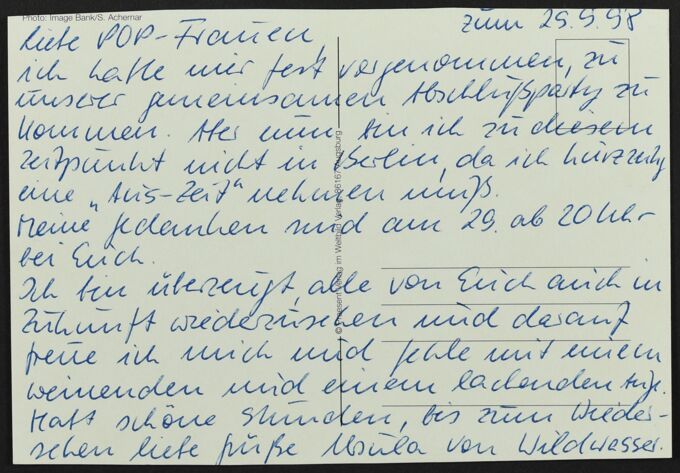 Photo: Image Bank/S. Achernar
zum 29.9.98
liebe POP-Frauen,
ich hatte mir fest vorgenommen, zu
unserer gemeinsamen Abschlußparty zu
kommen. Aber nun bin ich zu diesem
Zeitpunkt nicht in Berlin, da ich kurzzeitig
eine „Aus-Zeit“ nehmen muß.
Meine Gedanken sind am 29. ab 20 Uhr
bei Euch.
Ich bin überzeugt, alle von Euch auch in
Zukunft wiederzusehen und darauf
freue ich mich und fehle mit einem
weinenden und einem lachenden Auge.
Habt schöne Stunden, bis zum Wieder-
sehen liebe Grüße Ursula von Wildwasser.
Verlag im Weltbild Verlag, 86167 Augsburg